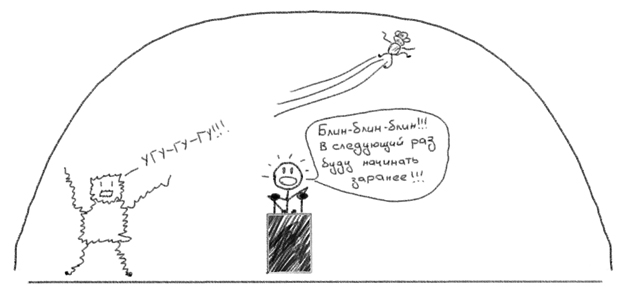 УГУ-ГУ-ГУ!!!
Блин-блин-блин!!!
В следующий раз
буду начинать
заранее!!!